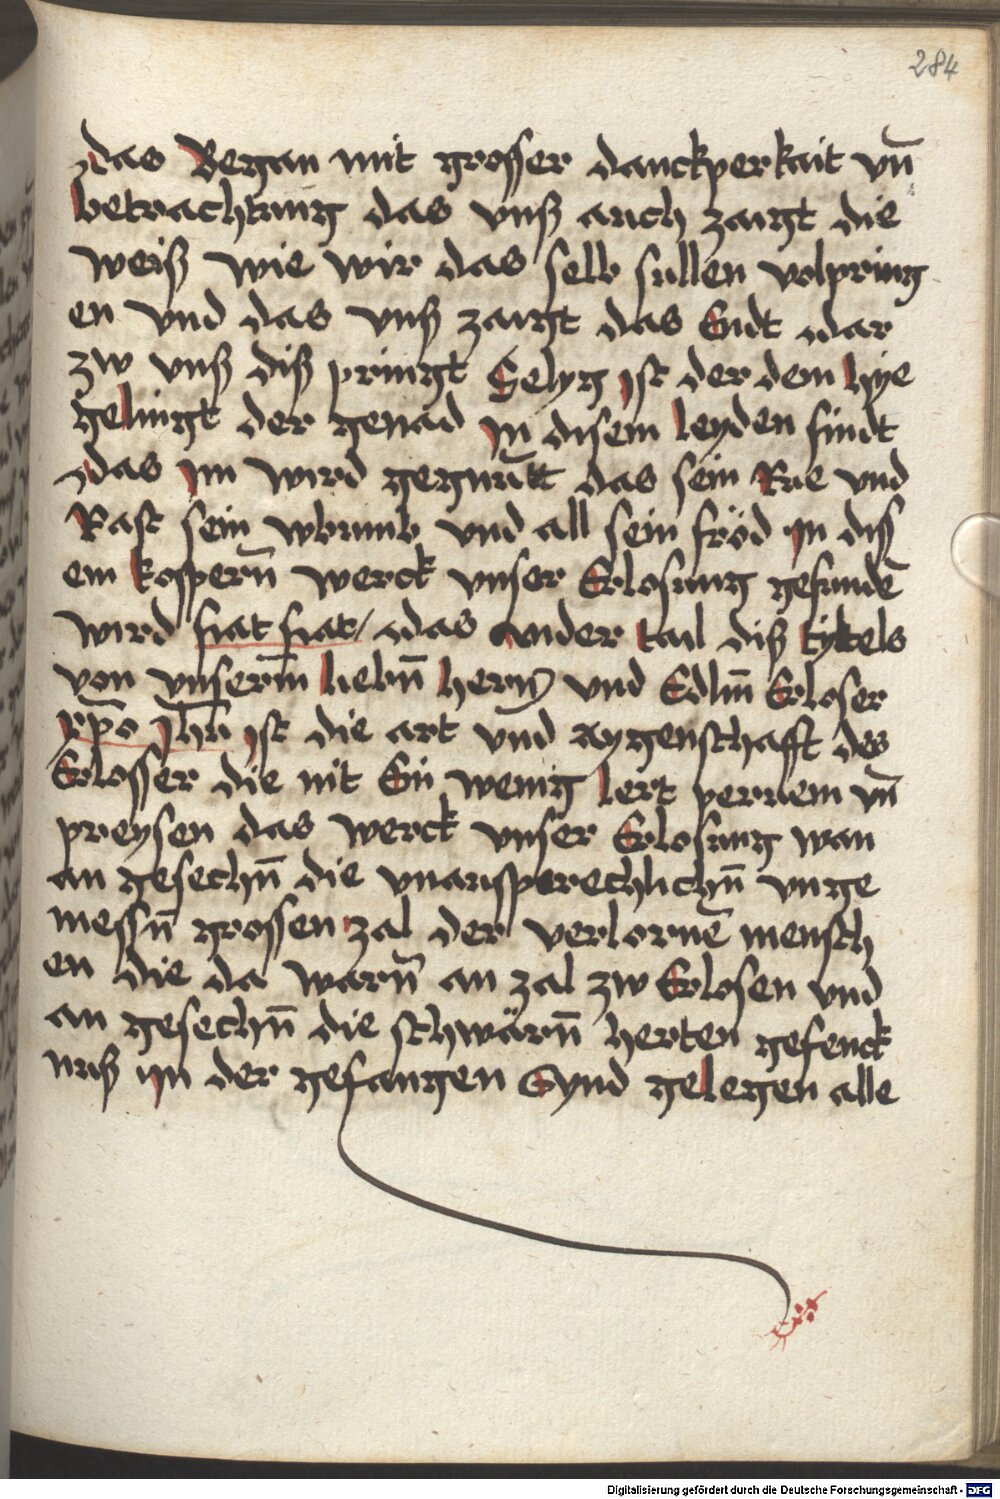 284
das Began mit grosser danckperkait vn̄
betrachtung das vnß auch zaigt die
weiß wie wir das selb sullen volpring
en vnd das vnß zaigt das Endt dar
zw vnß diß pringt Selyg jst der dem hye
gelingt der genad jn disem leyden findt
das jm wird gegundt das sein Rue vnd
Rast sein wbunnb vnd all sein fröd jn diß
em kospern̄ werck vnser Erlosung gefundē
wird fiat fiat / das ander tail diß tyttels
von vnserm̄ liebn̄ hern vnd Edlm̄ Erloser
xp̄o jhū jst die art vnd aygenschafft des
Erlosser die nit Ein wenig lert pernem vn̄
preysen das werck vnser Erlosung wan
an gesechn̄ die vnausperechlichn̄ vnge
messn̄ grossen zal der verlornē mensch
en die da warn̄ an zal zw Erlosen vnd
an gesechn̄ die schwärn̄ herten gefenck
nuß jn der gefangen Synd gelegen alle
Digitalisierung gefördert durch die Deutsche Forschungsgemeinschaft - DFG